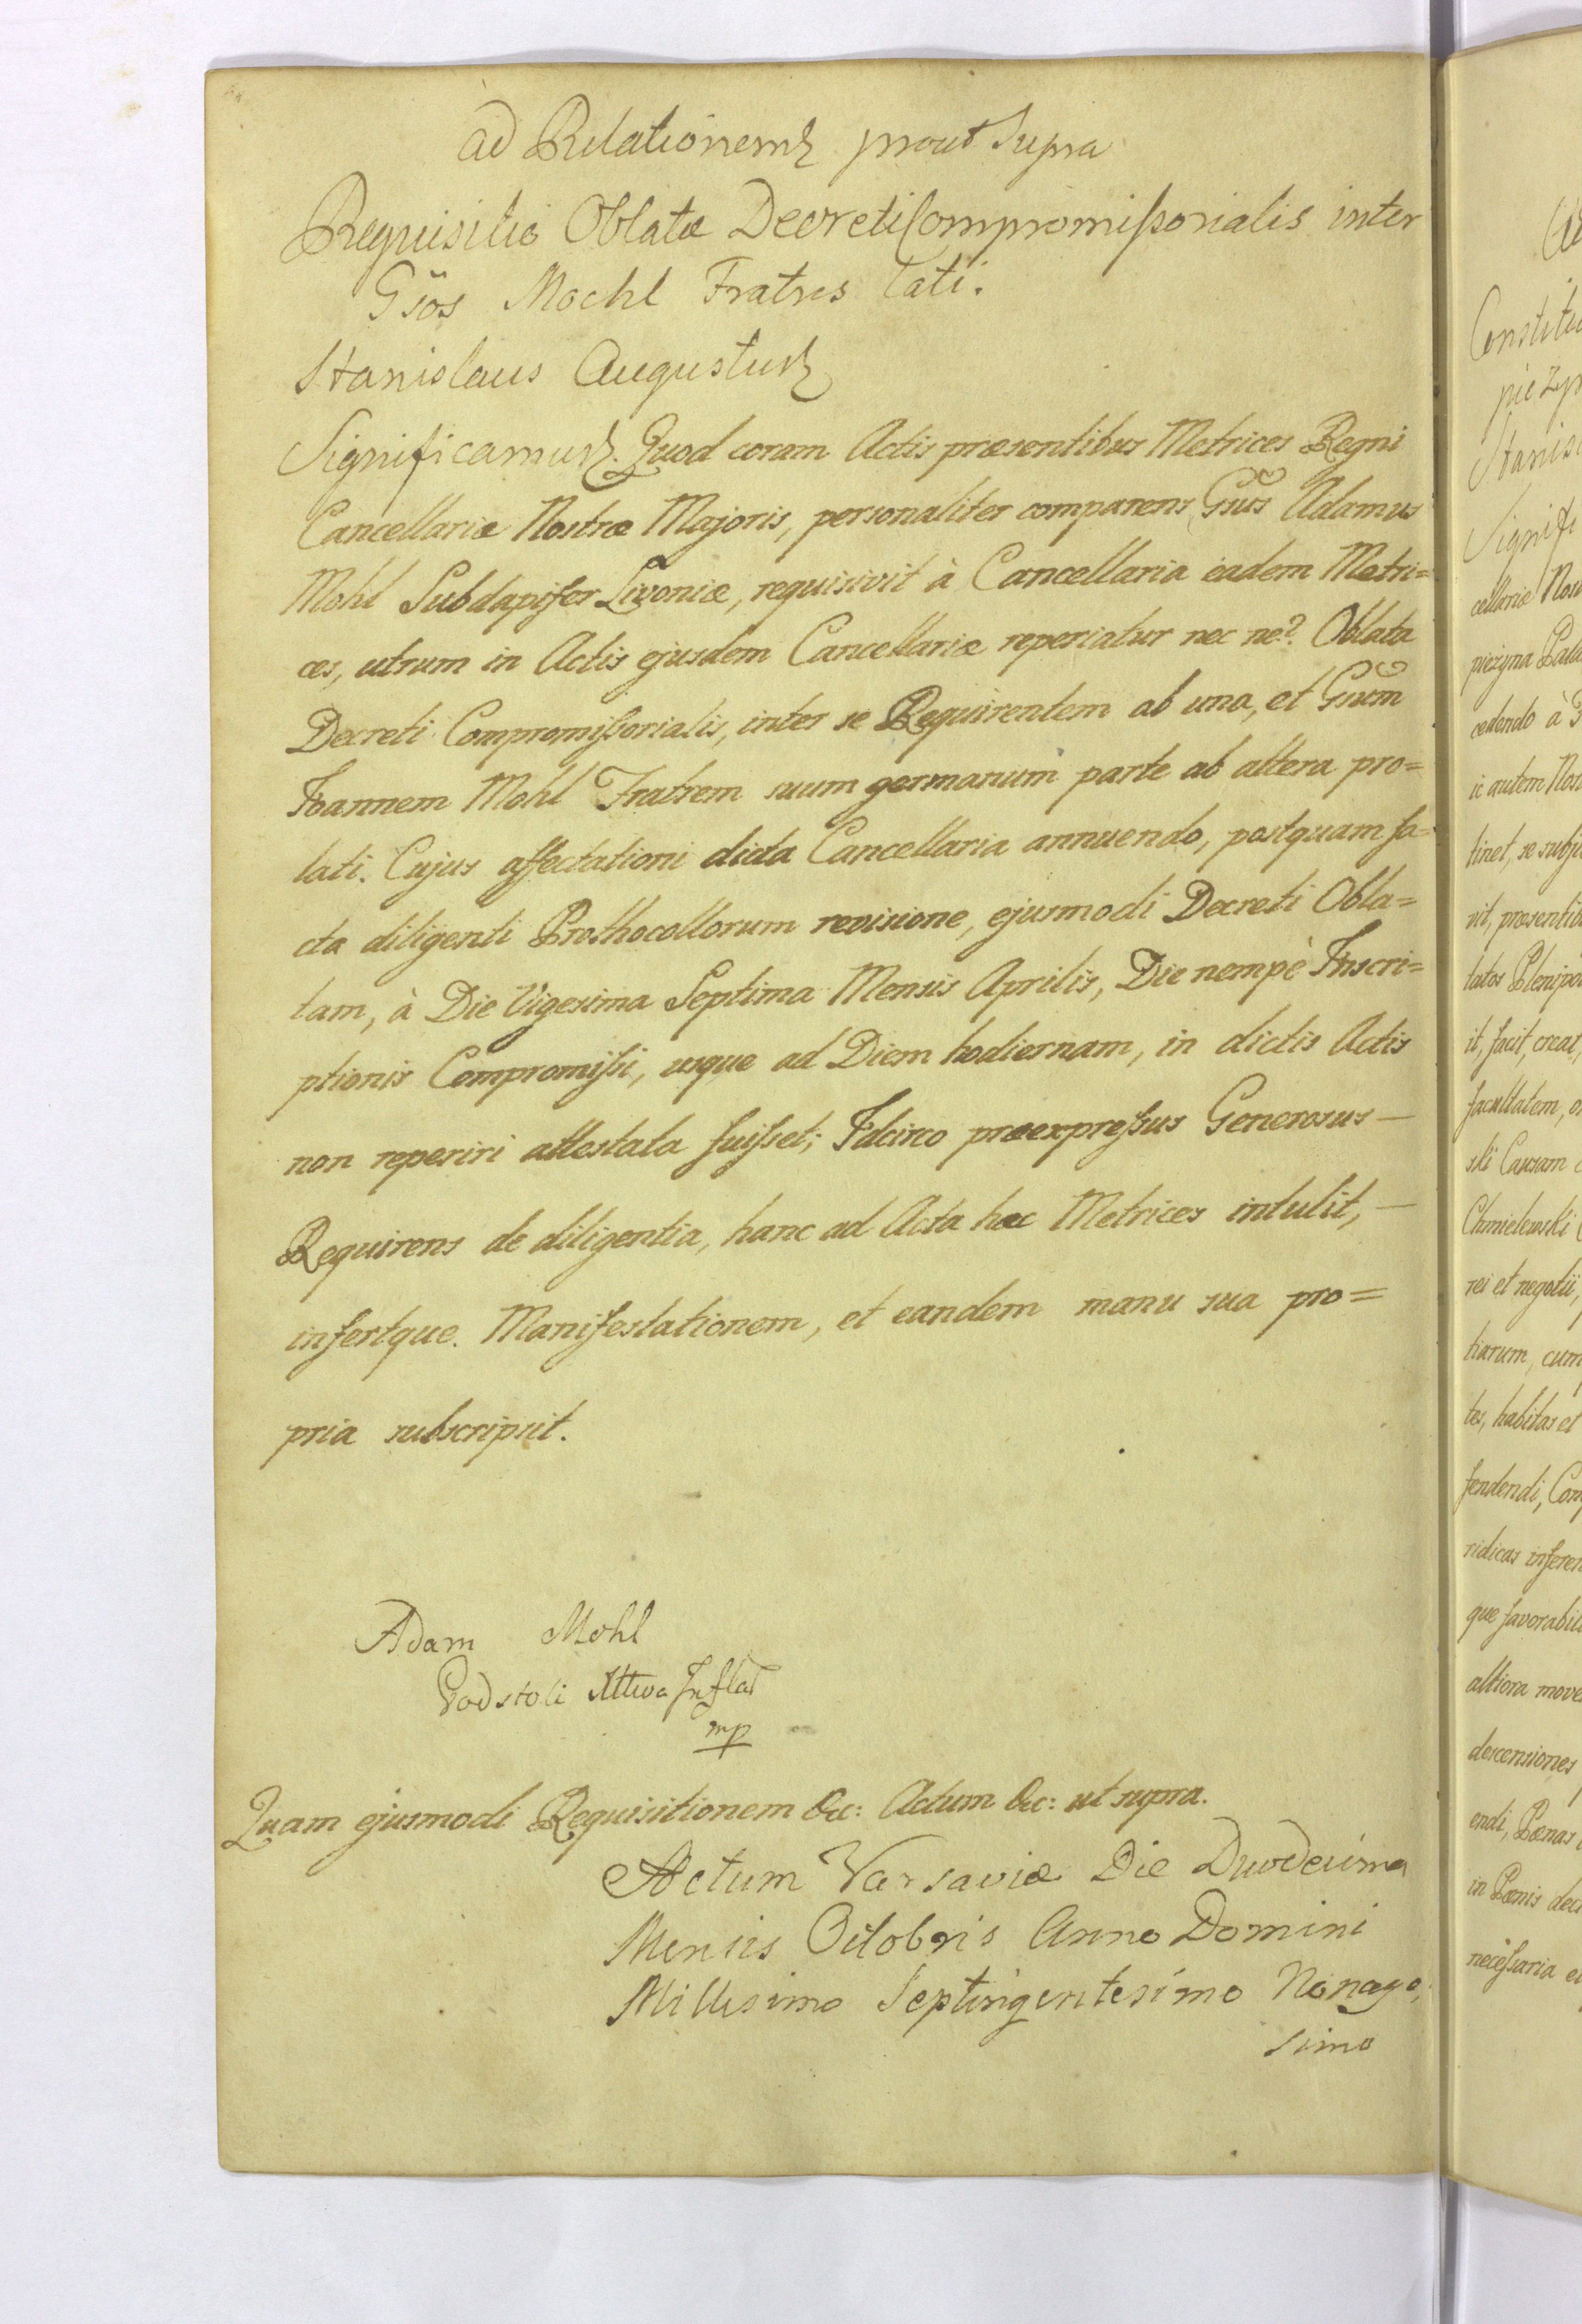 ad Relationem prout Supra
Requisitio Oblatæ Decreti Compromißorialis inter
Gsos Mochl Fratres lati.
Stanislaus Augustus
Significamus. Quod coram Actis præsentibus Metrices Regni
Cancellariæ Nostræ Majoris, personaliter comparens Gsus Adamus
Mohl Subdapifer Livoniæ, requisivit à Cancellaria eadem Metri=
ces, utrum in Actis ejusdem Cancellariæ reperiatur nec ne? Oblata
Decreti Compromißorialis, inter se Requirentem ab una, et Gsum
Joannem Mohl Fratrem suum germanum parte ab altera pro=
lati. Cujus affectationi dicta Cancellaria annuendo, postquam fa=
cta diligenti Prothocollorum revisione, ejusmodi Decreti Obla=
tam, à Die Vigesima Septima Mensis Aprilis, Die nempè Inscri=
ptionis Compromißi, usque ad Diem hodiernam, in dictis Actis
non reperiri attestata fuißet; Idcirco præexpreßus Generosus —
Requirens de diligentia, hanc ad Acta hæc Metrices intulit, —
infertque. Manifestationem, et eandem manu sua pro=
pria subscripsit.
Adam Mohl
Podstoli Inflat
mp
Quam ejusmodi Requisitionem &c: Actum &c: ut supra.
Actum Varsaviæ Die Duodecima
Mensis Octobris Anno Domini
Millesimo Septingentesimo Nonage,
simo
Constitu
piezyn
Stanis
Signifi
cellariæ Nos
piezyna Pala
cedendo à
ic autem Nos
tinet, se subji
vit, præsentib
tatos Plenipo
it, facit, creat,
facultatem, o
ski Causam
Chmielewski
rei et negotii,
tiarum, cum
tes, habitas et
fendendi, Com
ridicas inferen
que favorabili
altiora move
descensiones
endi, Pænas
in Pænis dec
neceßaria e